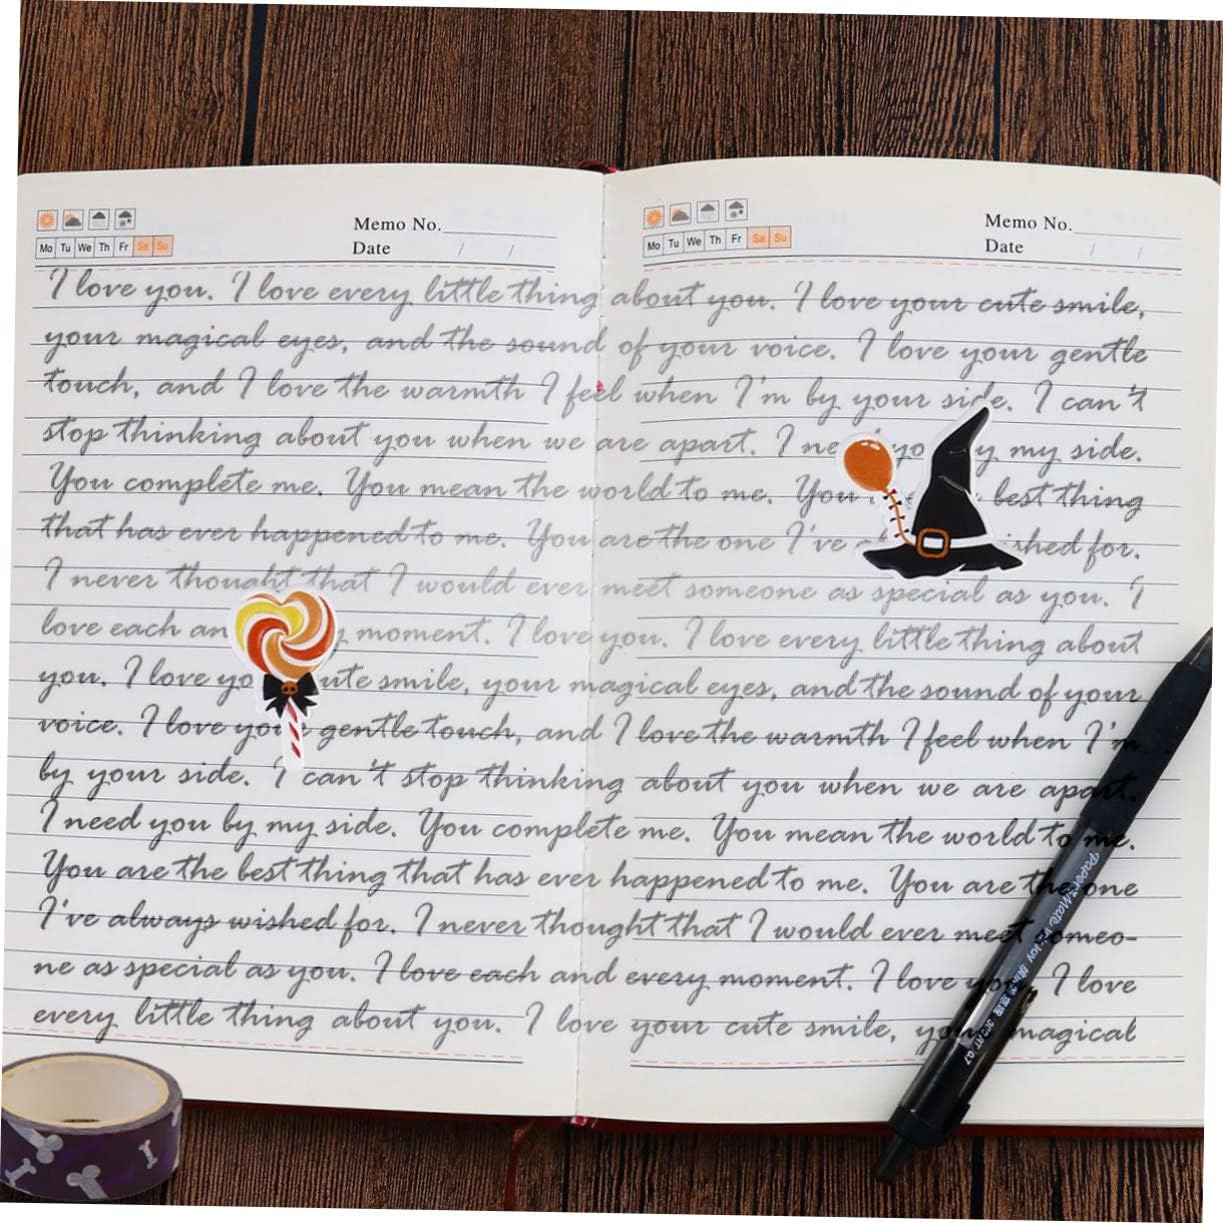 Memo No.
Mo Tu We Th Fr Sa Su
Date / /
Memo No.
Mo Tu We Th Fr Sa Su
Date / /
I love you. I love every little thing about you. I love your cute smile,
your magical eyes, and the sound of your voice. I love your gentle
touch, and I love the warmth I feel when I'm by your side. I can't
stop thinking about you when we are apart. I my side.
You complete me. You mean the world to me. You best thing
that has ever happened to me. You are the one I've for.
I never thought that I would ever meet someone as special as you. I
love each moment. I love you. I love every little thing about
you. I love smile, your magical eyes, and the sound of your
voice. I love gentle touch, and I love the warmth I feel when I'm
by your side. I can't stop thinking about you when we are apart.
I need you by my side. You complete me. You mean the world to me.
You are the best thing that has ever happened to me. You are the one
I've always wished for. I never thought that I would ever meet someo-
ne as special as you. I love each and every moment. I love you. I love
every little thing about you. I love your cute smile, your magical
PaperMate InkJoy 0.7